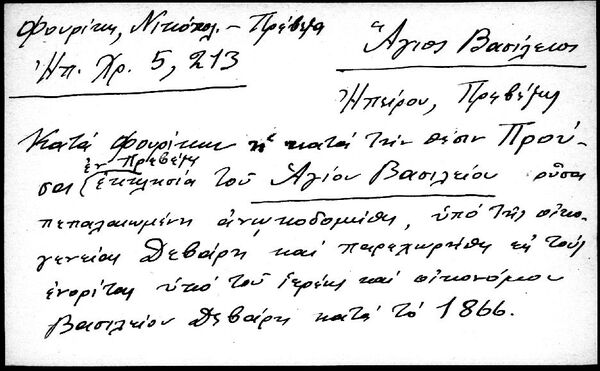 Φουρίκη, Νικόπολ. – Πρέβεζα
Ἠπ. Χρ. 5, 213
Ἅγιος Βασίλειος
Ἠπείρου, Πρεβέζης
Κατά Φουρίκην ἡ κατά τήν θέσιν Πρού-
ἐν Πρεβέζῃ
σαι ἐκκλησία τοῦ Ἁγίου Βασιλείου οὖσα
πεπαλαιωμένη ἀνῳκοδομήθη, ὑπό τῆς οἰκο-
γενείας Δεβάρη καί παρεχωρήθη εἰς τούς
ἐνορίτας ὑπό τοῦ ἱερέως καί οἰκονόμου
Βασιλείου Δεβάρη κατά τό 1866.